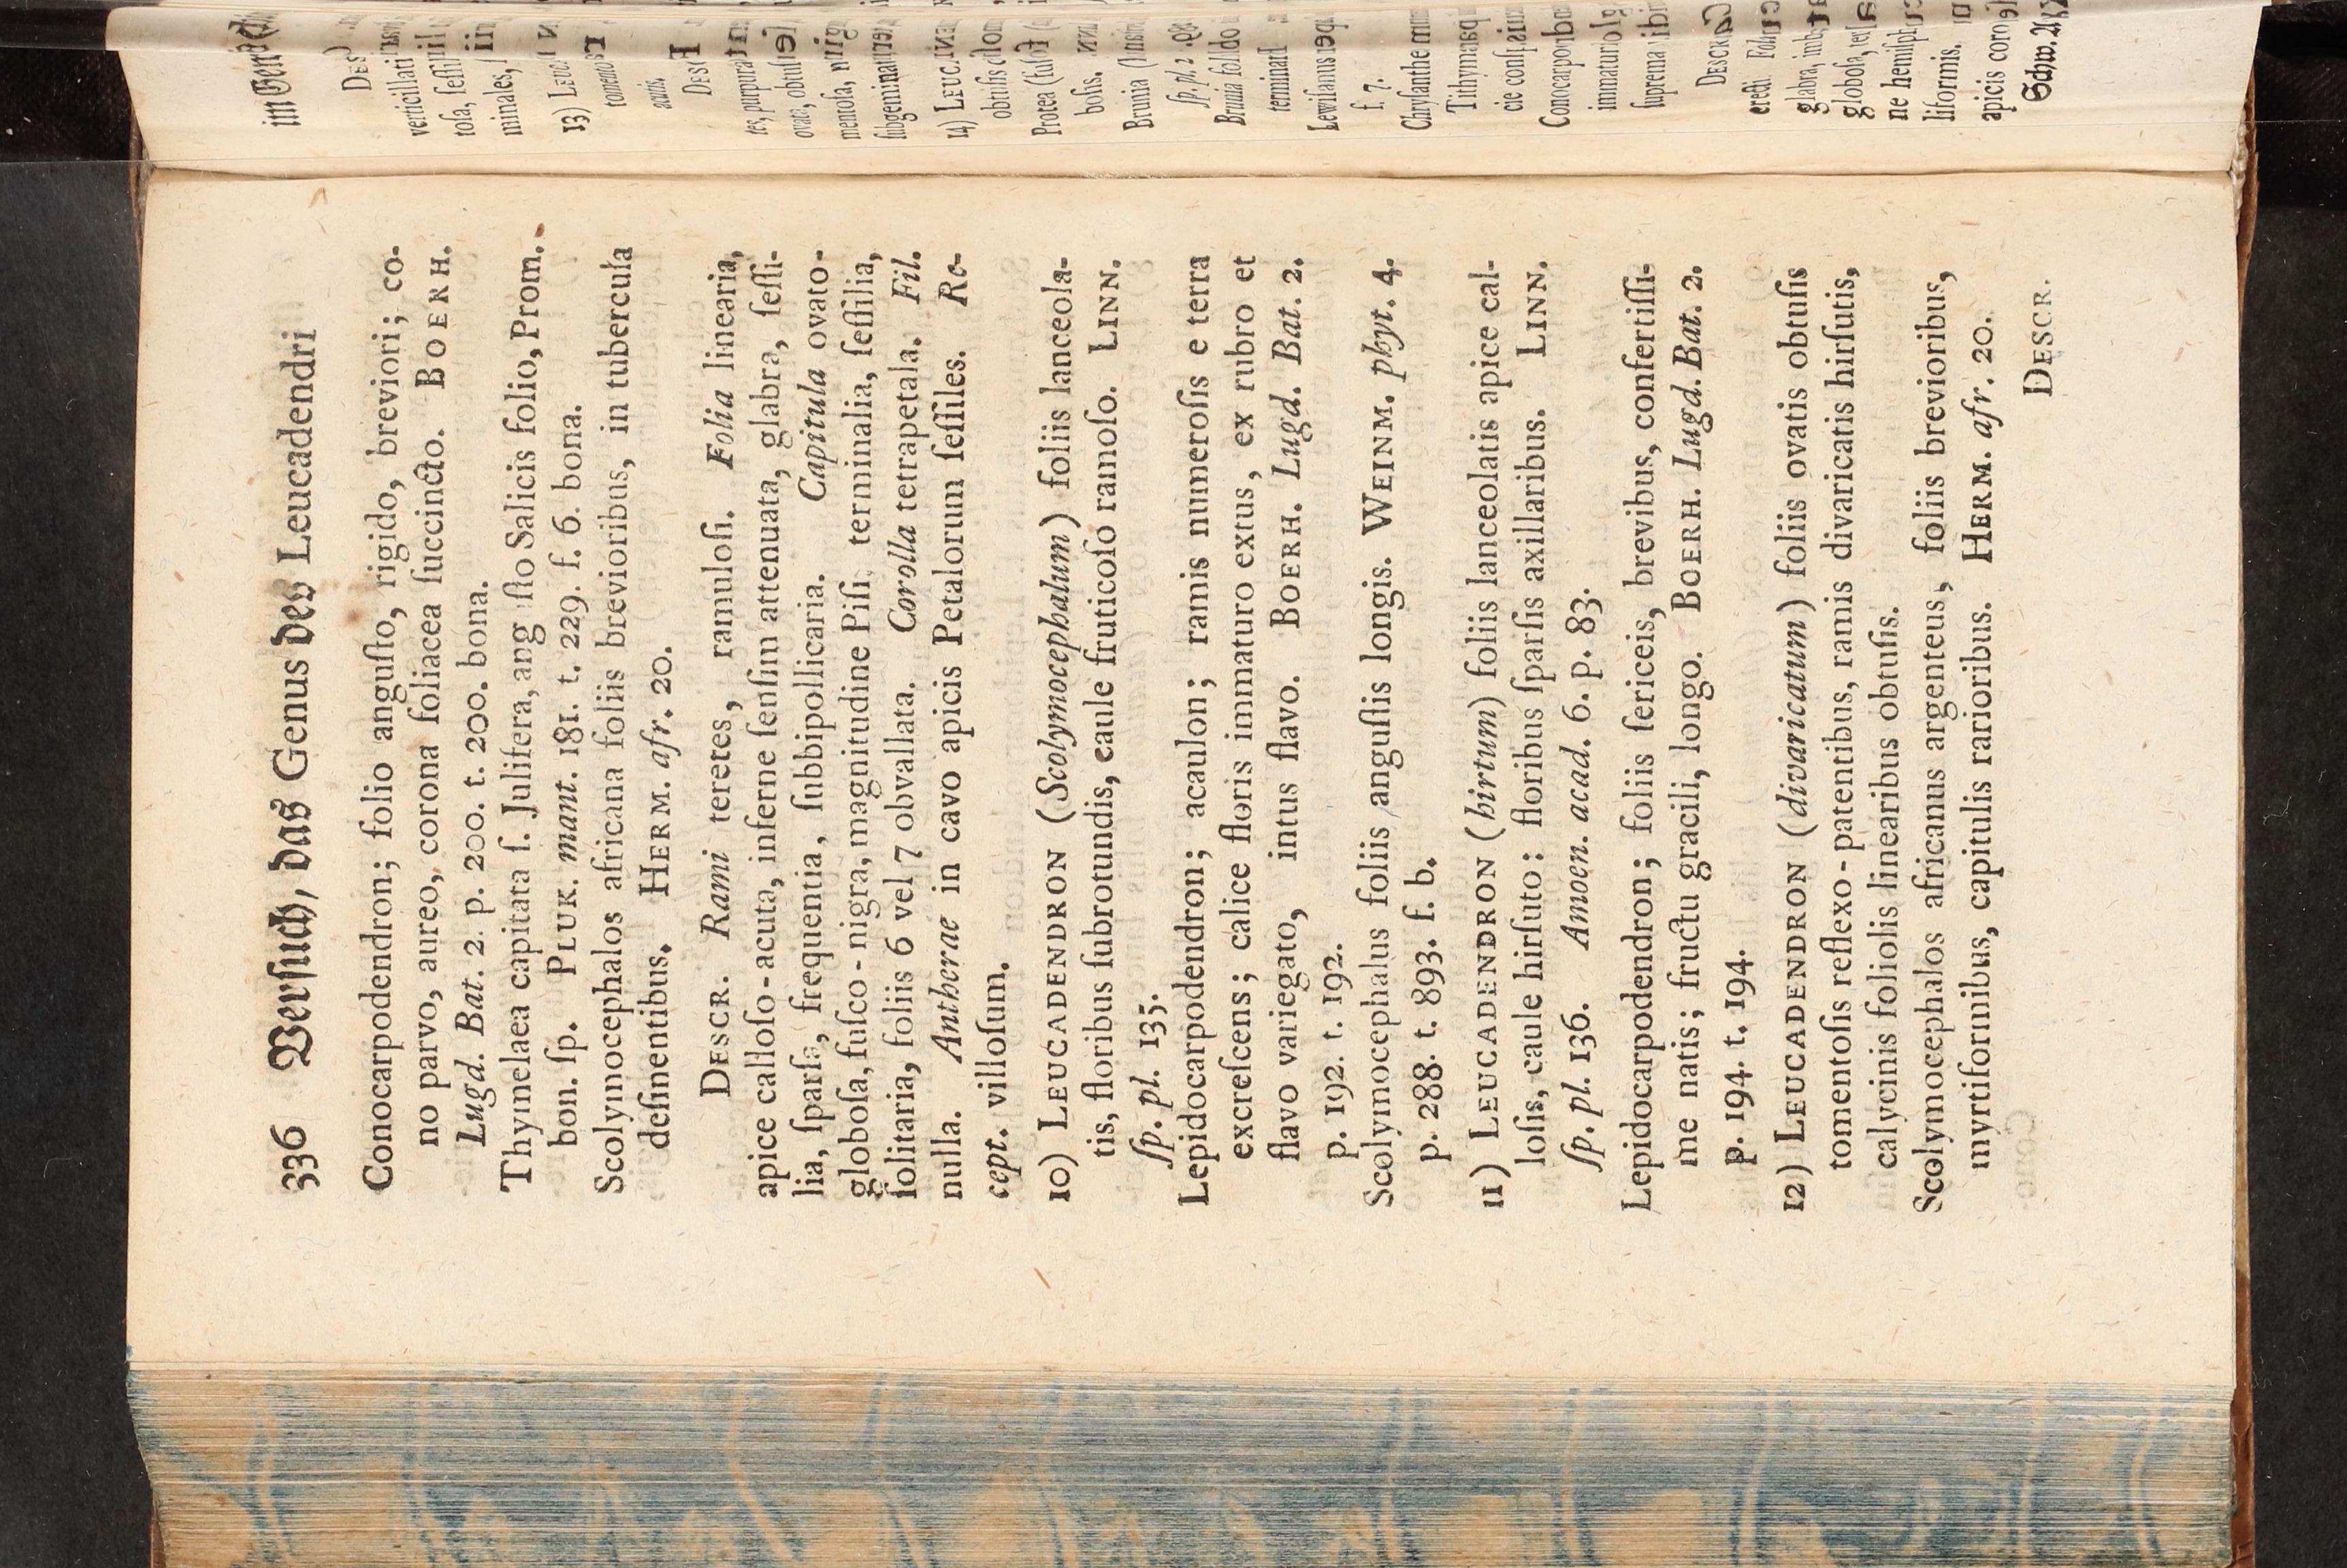 336 Verſuch, das Genus des Leucadendri
Conocarpodendron; folio anguſto, rigido, breviori; co-
no parvo, aureo, corona foliacea ſuccincto. BOERH.
Lugd. Bat. 2. p. 200. t. 200. bona.
Thymelaea capitata ſ. Julifera, anguſto Salicis folio, Prom.
bon. ſp. PLUK. mant. 181. t. 229. f. 6. bona.
Scolymocephalos africana foliis brevioribus, in tubercula
deſinentibus. HERM. afr. 20.
DESCR. Rami teretes, ramuloſi. Folia linearia,
apice calloſo-acuta, inferne ſenſim attenuata, glabra, ſeſſi-
lia, ſparſa, frequentia, ſubbipollicaria. Capitula ovato-
globoſa, fuſco-nigra, magnitudine Piſi terminalia, ſeſſilia,
ſolitaria, foliis 6 vel 7 obvallata. Corolla tetrapetala. Fil.
nulla. Antherae in cavo apicis Petalorum ſeſſiles. Re-
cept. villoſum.
10) LEUCADENDRON (Scolymocephalum) foliis lanceola-
tis, floribus ſubrotundis, caule fruticoſo ramoſo. LINN.
ſp. pl. 135.
Lepidocarpodendron; acaulon; ramis numeroſis e terra
excreſcens; calice floris immaturo extus, ex rubro et
flavo variegato, intus flavo. BOERH. Lugd. Bat. 2.
p. 192. t. 192.
Scolymocephalus foliis anguſtis longis. WEINM. phyt. 4.
p. 288. t. 893. f. b.
11) LEUCADENDRON (hirtum) foliis lanceolatis apice cal-
loſis, caule hirſuto: floribus ſparſis axillaribus. LINN.
ſp. pl. 136. Amoen. acad. 6. p. 83.
Lepidocarpodendron; foliis ſericeis, brevibus, confertiſſi-
me natis; fructu gracili, longo. BOERH. Lugd. Bat. 2.
p. 194. t. 194.
12) LEUCADENDRON (divaricatum) foliis ovatis obtuſis
tomentoſis reflexo-patentibus, ramis divaricatis hirſutis,
calycinis foliolis linearibus obtuſis.
Scolymocephalos africanus argenteus, foliis brevioribus,
myrtiformibus, capitulis rarioribus. HERM. afr. 20.
DESCR.
verticillati
toſa, ſeſſi
minales,
13) LEUC
tomento
acutis.
DESC
tes, purpura
ovate, obtuſ
mentoſa,
ſubgemina
14) LEUC
obtuſis
Protea (
boſis.
Brunia (
ſp. pl. 2.
Brunia fol
terminat
Lewiſanus
f. 7.
Chryſanthe
Tithymas
cie con
Conocarpo
immaturi
ſuprema
DESCR
erecti. Fol
glabra, imb
globoſa, ter
ne hemiſph
liformis.
apicis coro
Schw.